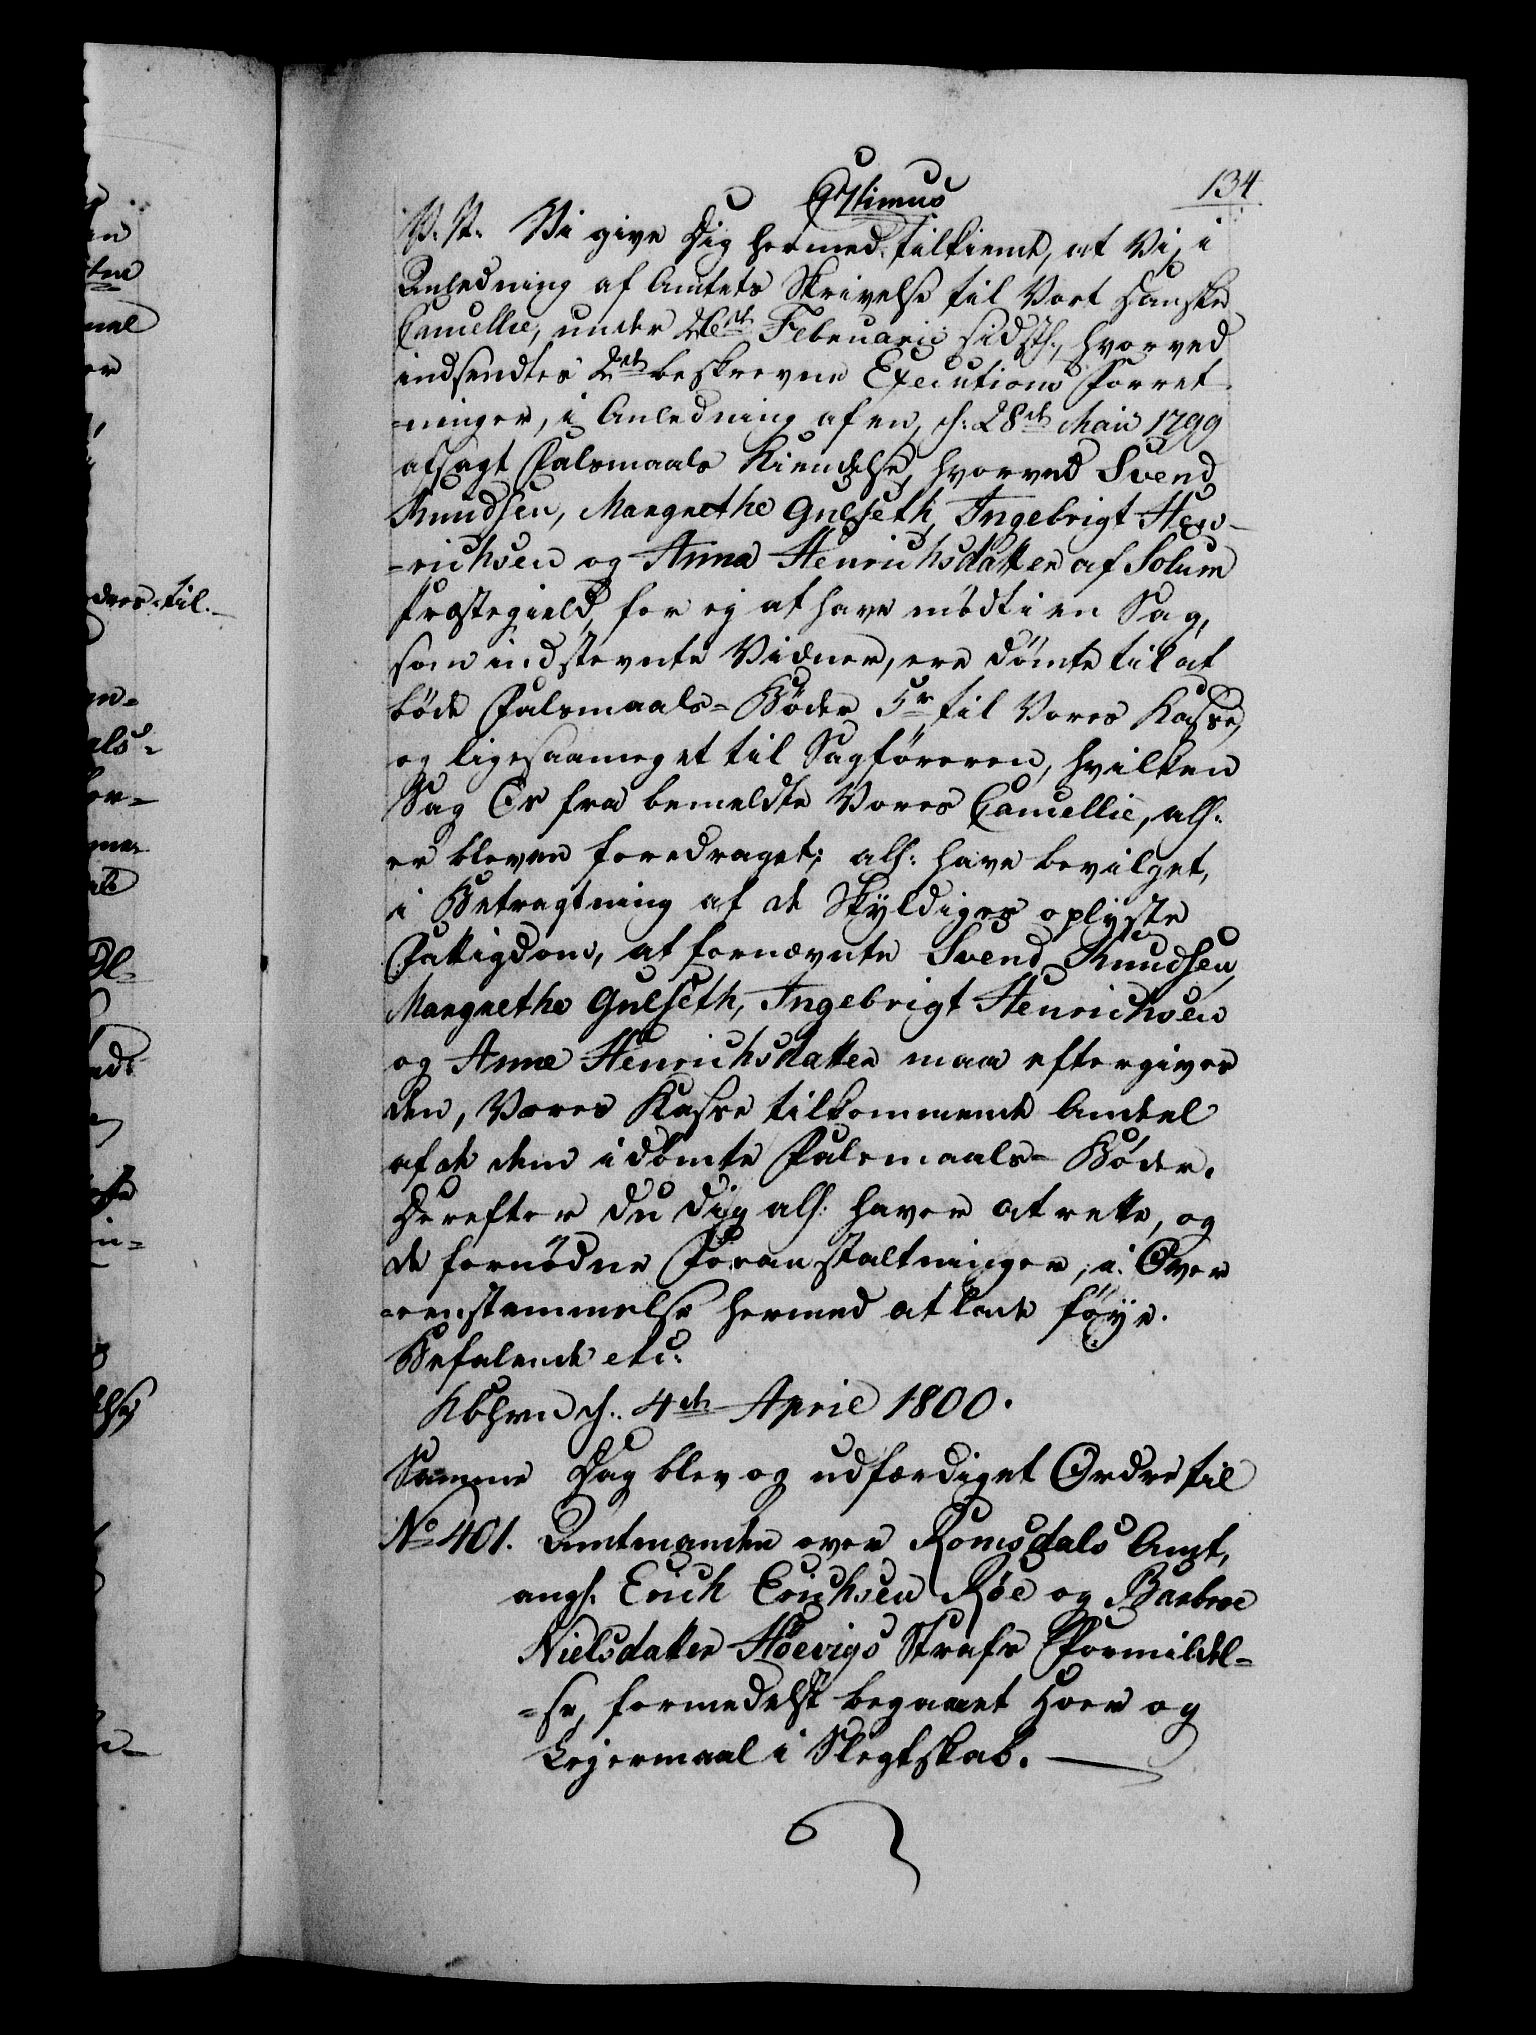 134
P. P. Vi give Dig hermed tilkiende, at Vi, i
Anledning af Amtets Skrivelse til Vort Danske
Cancellie, under 26de Februarii sidstl., hvorved
indsendtes 2de beskrevne Executions Forret-
-ninger, i Anledning af en, d: 28de Maii 1799
afsagt Falsmaals Kiendelse, hvorved Svend
Knudsen, Margrethe Gulseth, Ingebrigt Hen-
-richsen og Anna Henrichsdatter af Solum
Præstegield, for ej at have mödt i en Sag,
som indstevnte Vidner, ere dömte til at
böde Falsmaals-Böder 5r til Vores Kasse,
og ligesaameget til Sagföreren, hvilken
Sag Os fra bemeldte Vores Cancellie, alh:
er bleven foredraget; alh: have bevilget,
i Betragtning af de Skyldiges oplyste
Fattigdom, at fornævnte Svend Knudsen,
Margrethe Gulseth, Ingebrigt Henrichsen
og Anne Henrichsdatter maa eftergives
den, Vores Kasse tilkommende Andeel
af de dem idömte Falsmaals-Böder.
Derefter du dig alh: haver at rette, og
de fornödne Foranstaltninger, i Over
-eenstemmelse hermed at lade föye.
Befalende etc:
Kbhvn d: 4de April 1800.
Samme Dag blev og udfærdiget Ordre til
No 401. Amtmanden over Romsdals Amt,
angl. Erich Erichsen Röe og Barbroe
Nielsdatter Höevigs Straffs Formildel-
-se, formedelst begaaet Hoer og
Lejermaal i Slegtskab.
dres til